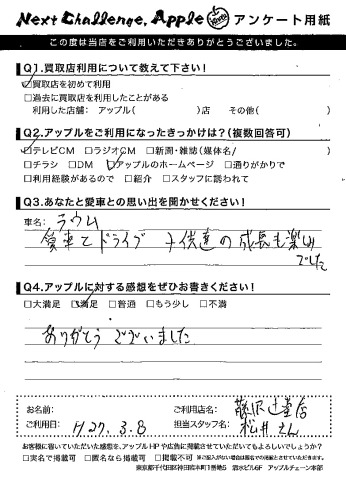 Next Challenge, Apple アンケート用紙
この度は当店をご利用いただきありがとうございました。
Q1.買取店利用について教えて下さい!
☑買取店を初めて利用
□過去に買取店を利用したことがある
利用した店舗: アップル( )店 その他( )
Q2.アップルをご利用になったきっかけは?(複数回答可)
☑テレビCM □ラジオCM □新聞・雑誌(媒体名/ )
□チラシ □DM ☑アップルのホームページ □通りがかりで
□利用経験があるので □紹介 □スタッフに誘われて
Q3.あなたと愛車との思い出を聞かせください!
車名: ラウム
愛車でドライブ 子供達の成長も楽しみ
でした
Q4.アップルに対する感想をぜひお書きください!
□大満足 ☑満足 □普通 □もう少し □不満
ありがとうございました
お名前: ご利用店名: 藤沢辻堂店
ご利用日: H27.3.8 担当スタッフ名: 松井さん
お客様に書いていただいた感想を、アップルHPや広告に掲載させていただいてもよろしいでしょうか?
□実名で掲載可 □匿名なら掲載可 □掲載不可 ※ご記入がない場合は匿名での掲載とさせていただきます。
東京都千代田区神田松本町1番地5 清水ビル6F アップルチェーン本部